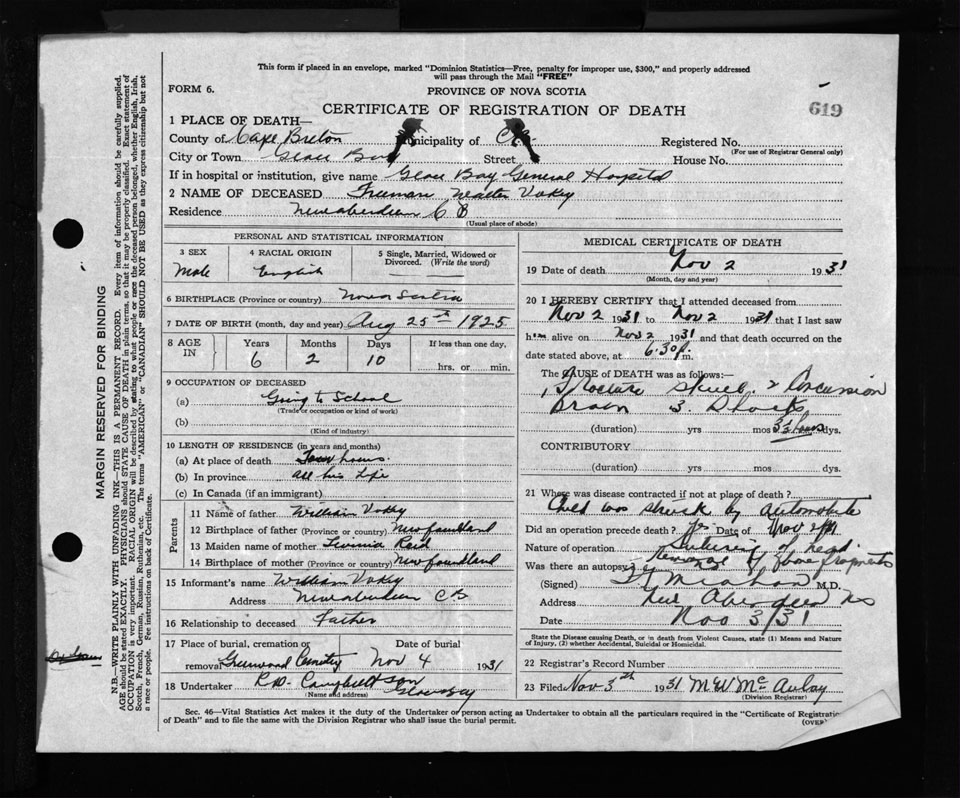 This form if placed in an envelope, marked "Dominion Statistics—Free, penalty for improper use, $300," and properly addressed
will pass through the Mail "FREE"
FORM 6.
PROVINCE OF NOVA SCOTIA
CERTIFICATE OF REGISTRATION OF DEATH
619
1 PLACE OF DEATH—
County of Cape Breton Municipality of C.B. Registered No.
(For use of Registrar General only)
City or Town Glace Bay Street House No.
If in hospital or institution, give name Glace Bay General Hospital
2 NAME OF DECEASED Freeman Walter Vokey
Residence New Aberdeen C B
(Usual place of abode)
PERSONAL AND STATISTICAL INFORMATION
3 SEX 4 RACIAL ORIGIN 5 Single, Married, Widowed or Divorced. (Write the word)
Male English
6 BIRTHPLACE (Province or country) Nova Scotia
7 DATE OF BIRTH (month, day and year) Aug 25th 1925
8 AGE IN Years Months Days If less than one day,
6 2 10 hrs. or min.
9 OCCUPATION OF DECEASED
(a) Going to School
(Trade or occupation or kind of work)
(b)
(Kind of industry)
10 LENGTH OF RESIDENCE (in years and months)
(a) At place of death hours
(b) In province all his life
(c) In Canada (if an immigrant)
Parents
11 Name of father William Vokey
12 Birthplace of father (Province or country) Newfoundland
13 Maiden name of mother Reid
14 Birthplace of mother (Province or country) Newfoundland
15 Informant's name William Vokey
Address New Aberdeen CB
16 Relationship to deceased Father
17 Place of burial, cremation or Date of burial
removal Greenwood Cemetery Nov 4 1931
18 Undertaker Campbell & Son
(Name and address) Glace Bay
MEDICAL CERTIFICATE OF DEATH
19 Date of death Nov 2 1931
(Month, day and year)
20 I HEREBY CERTIFY that I attended deceased from
Nov 2 1931 to Nov 2 1931 that I last saw
him alive on Nov 2 1931 and that death occurred on the
date stated above, at 6.30 p.m.
The CAUSE OF DEATH was as follows:
1 Fracture Skull 2 Concussion
Brain 3. Shock
(duration) yrs mos 3½ hours dys.
CONTRIBUTORY
(duration) yrs mos dys.
21 Where was disease contracted if not at place of death?
Child was struck by automobile
Did an operation precede death? Yes Date of Nov 2/31
Nature of operation Suturing of head
Removal of bone fragments
Was there an autopsy?
(Signed) M.D.
Address New Aberdeen NS
Date Nov 3/31
State the Disease causing Death, or in death from Violent Causes, state (1) Means and Nature
of Injury, (2) whether Accidental, Suicidal or Homicidal.
22 Registrar's Record Number
23 Filed Nov 3th 1931 M W McAulay
(Division Registrar)
Sec. 46—Vital Statistics Act makes it the duty of the Undertaker or person acting as Undertaker to obtain all the particulars required in the "Certificate of Registration
of Death" and to file the same with the Division Registrar who shall issue the burial permit.
(OVER)
MARGIN RESERVED FOR BINDING
N.B.—WRITE PLAINLY WITH UNFADING INK—THIS IS A PERMANENT RECORD. Every item of information should be carefully supplied.
AGE should be stated EXACTLY. PHYSICIANS should STATE CAUSE OF DEATH in plain terms, so that it may be properly classified. Exact statement of
OCCUPATION is very important. RACIAL ORIGIN will be described by stating to what people or race the deceased person belonged, whether English, Irish,
Scotch, French, German, Russian, Ruthenian, etc. The terms "AMERICAN" or "CANADIAN" SHOULD NOT BE USED as they express citizenship but not
a race or people. Fee instructions on back of Certificate.